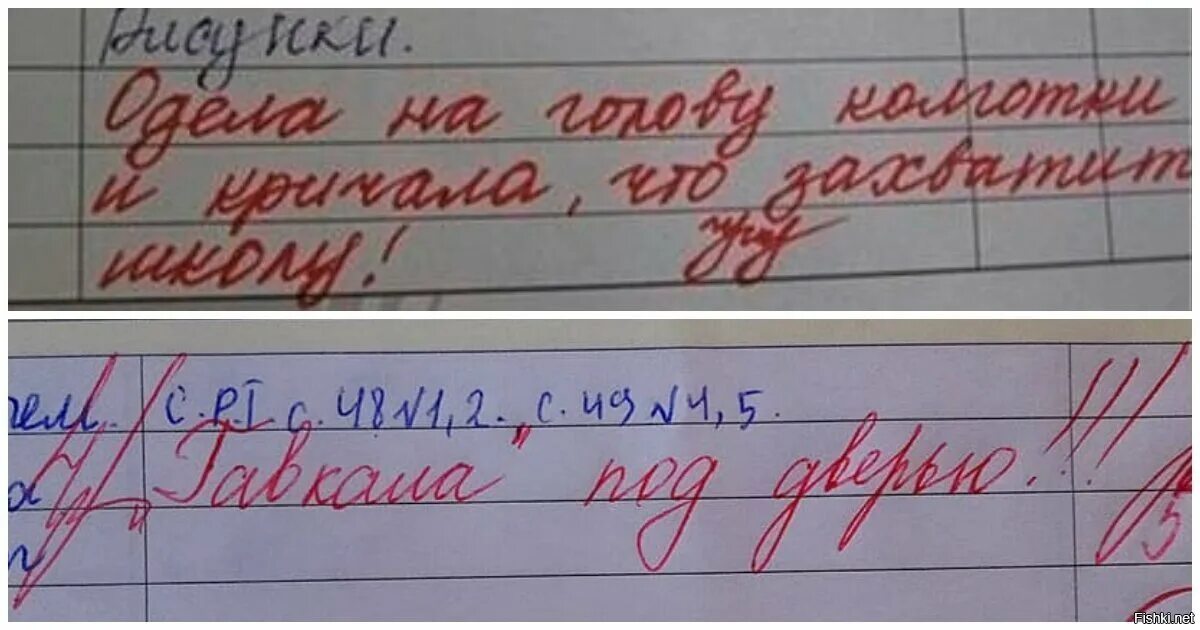 Рисунки.
Одела на голову колготки
и кричала, что захватит
школу!
чем. С. Р.I с. 48 №1, 2. с. 49 №4, 5.
„Гавкала” под дверью!!!
5
Fishki.net